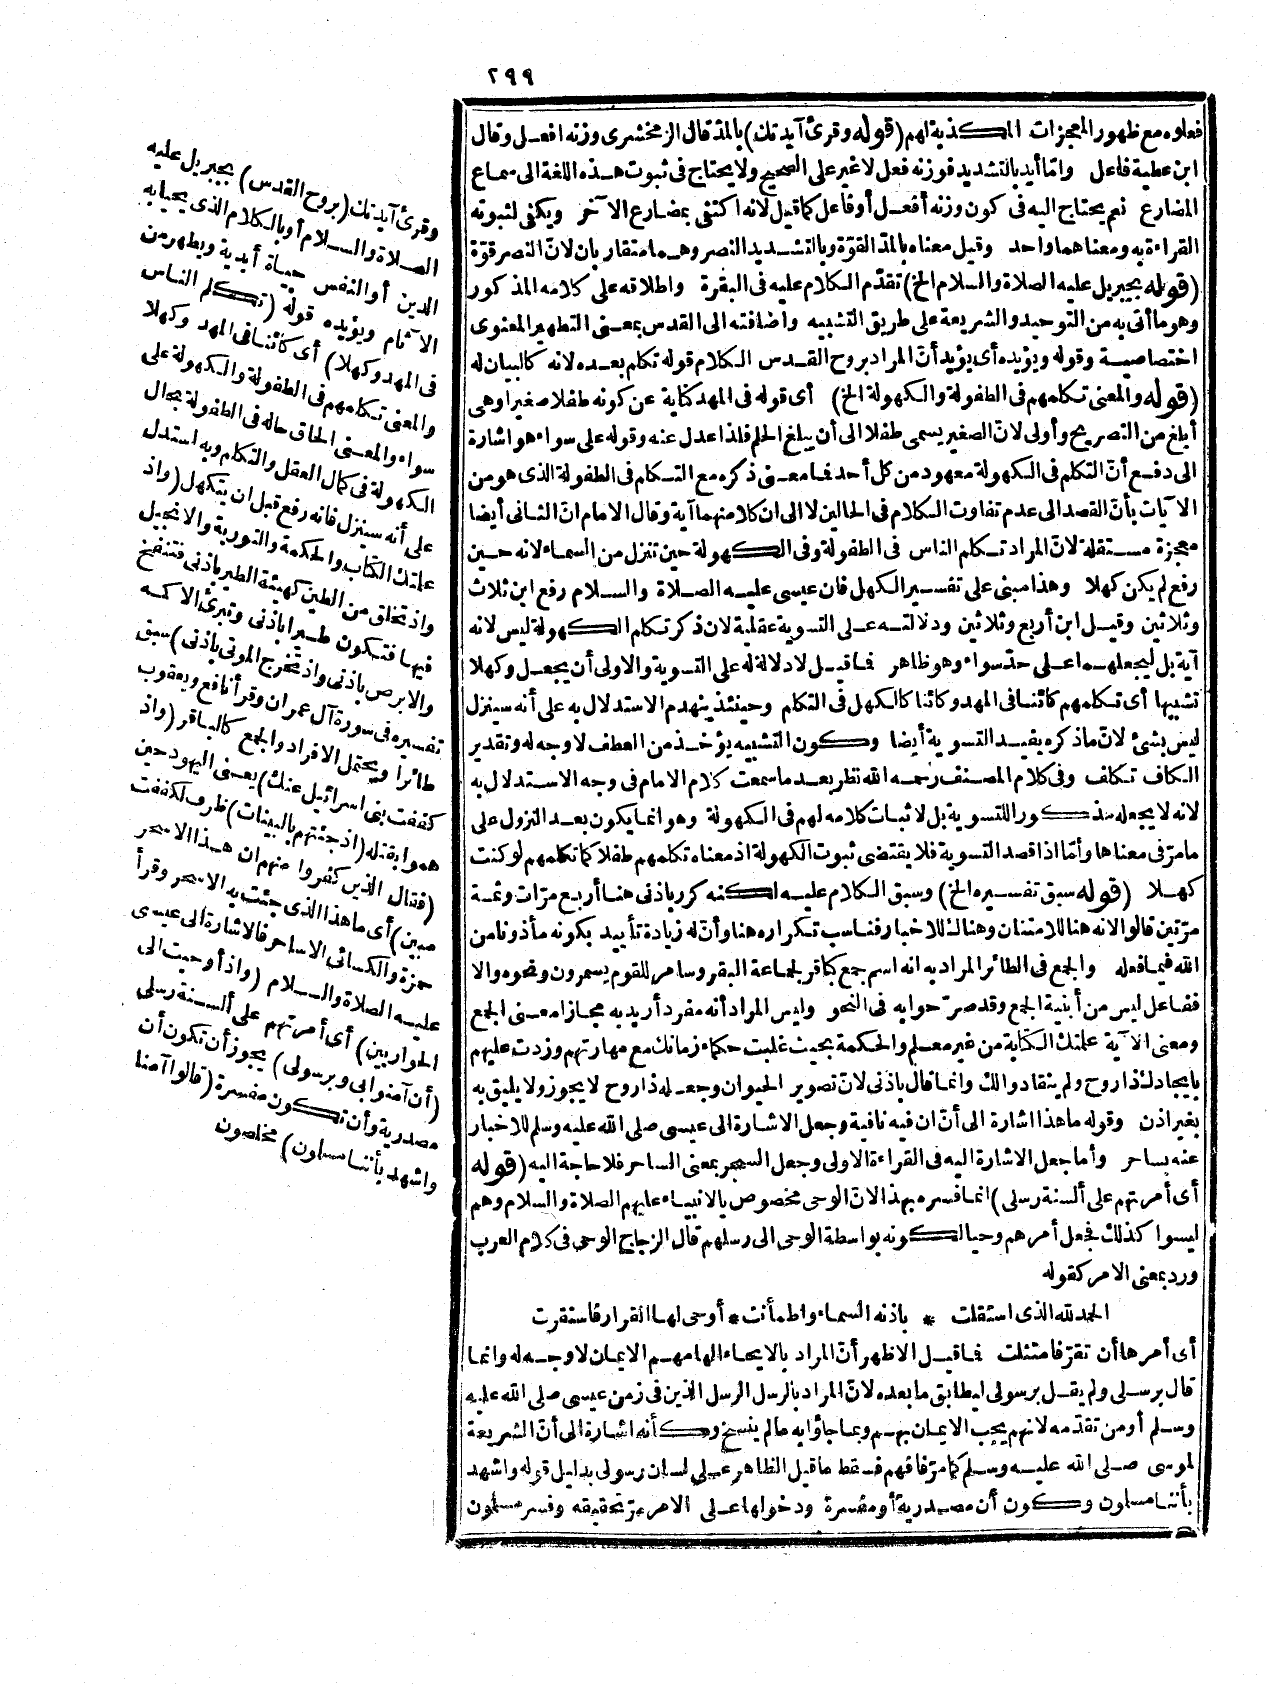 ٢٩٩
فعلوه مع ظهور المعجزات المكذبة لهم (قوله وقرئ آيدتك) بالمد قال الزمخشرى وزنه افعل وقال
ابن عطية فاعل وامّا أيد بالتشديد فوزنه فعل لا غير على الصحيح ولا يحتاج فى ثبوت هذه اللغة الى سماع
المضارع نعم يحتاج اليه فى كون وزنه أفعل أو فاعل كما قيل لانه اكتفى بمضارع الآخر ويكفى لثبوته
القراءة به ومعناهما واحد وقيل معناه بالمدّ القوّة وبالتشديد النصر وهما متقاربان لانّ النصر قوّة
(قوله بجبريل عليه الصلاة والسلام الخ) تقدّم الكلام عليه فى البقرة واطلاقه على كلامه المذكور
وهو ما أتى به من التوحيد والشريعة على طريق التشبيه واضافته الى القدس بمعنى التطهير المعنوى
اختصاصية وقوله ويؤيده أى يؤيد أنّ المراد بروح القدس الكلام قوله تكلم بعده لانه كالبيان له
(قوله والمعنى تكلمهم فى الطفولة والكهولة الخ) أى قوله فى المهد كناية عن كونه طفلا صغيرا وهى
أبلغ من التصريح وأولى لانّ الصغير يسمى طفلا الى أن يبلغ الحلم فلذا عدل عنه وقوله على سواء هو اشارة
الى دفع أنّ التكلم فى الكهولة معهود من كل أحد فما معنى ذكره مع التكلم فى الطفولة الذى هو من
الآيات بأنّ القصد الى عدم تفاوت الكلام فى الحالين لا الى ان كلا منهما آية وقال الامام انّ الثانى أيضا
معجزة مستقلة لانّ المراد تكلم الناس فى الطفولة وفى الكهولة حين تنزل من السماء لانه حين
رفع لم يكن كهلا وهذا مبنى على تفسير الكهل فان عيسى عليه الصلاة والسلام رفع ابن ثلاث
وثلاثين وقيل ابن أربع وثلاثين ودلالته على التسوية عقلية لان ذكر تكلم الكهولة ليس لانه
آية بل ليجعلهما على حدّ سواء وهو ظاهر فما قيل لا دلالة له على التسوية والاولى أن يجعل وكهلا
تشبيها أى تكلمهم كائنا فى المهد وكائنا كالكهل فى التكلم وحينئذ ينهدم الاستدلال به على أنه سينزل
ليس بشئ لانّ ما ذكره يفيد التسوية أيضا وكون التشبيه يؤخذ من العطف لا وجه له وتقدير
الكاف تكلف وفى كلام المصنف رحمه الله نظر بعد ما سمعت كلام الامام فى وجه الاستدلال به
لانه لا يجعله مذكورا للتسوية بل لاثبات كلامه لهم فى الكهولة وهو انما يكون بعد النزول على
ما مرّ فى معناها وأمّا اذا قصد التسوية فلا يقتضى ثبوت الكهولة اذ معناه تكلمهم طفلا كما تكلمهم لو كنت
كهلا (قوله سبق تفسيره الخ) وسبق الكلام عليه لكنه كرر باذنى هنا أربع مرّات وثمة
مرّتين قالوا لانه هنا للامتنان وهناك للاخبار فناسب تكراره هنا وأنّ له زيادة تأييد بكونه مأذونا من
الله فيما فعله والجمع فى الطائر المراد به انه اسم جمع كباقر لجماعة البقر وسامر للقوم يسمرون ونحوه والا
ففاعل ليس من أبنية الجمع وقد صرّحوا به فى النحو وليس المراد أنه مفرد أريد به مجازا معنى الجمع
ومعنى الآية علمتك الكتابة من غير معلم والحكمة بحيث غلبت حكماء زمانك مع مهارتهم وزدت عليهم
بايجاد لذا روح ولم ينقادوا لك وانما قال باذنى لانّ تصوير الحيوان وجعله ذا روح لا يجوز ولا يليق به
بغير اذن وقوله ما هذا اشارة الى أنّ ان فيه نافية وجعل الاشارة الى عيسى صلى الله عليه وسلم للاخبار
عنه بساحر وأما جعل الاشارة اليه فى القراءة الاولى وجعل السحر بمعنى الساحر فلا حاجة اليه (قوله
أى أمرتهم على ألسنة رسلى) انما فسره بهذا لانّ الوحى مخصوص بالانبياء عليهم الصلاة والسلام وهم
ليسوا كذلك فجعل أمرهم وحيا لكونه بواسطة الوحى الى رسلهم قال الزجاج الوحى فى كلام العرب
ورد بمعنى الامر كقوله
الحمد لله الذى استقلت * باذنه السماء واطمأنت * أوحى لها القرار فاستقرت
أى أمرها أن تقرّ فامتثلت فما قيل الاظهر أنّ المراد بالايحاء الهامهم الايمان لا وجه له وانما
قال برسلى ولم يقل برسولى ليطابق ما بعده لانّ المراد بالرسل الرسل الذين فى زمن عيسى صلى الله عليه
وسلم أو من تقدّمه لانهم يجب الايمان بهم وبما جاؤا به ما لم ينسخ وكأنه اشارة الى أنّ الشريعة
لموسى صلى الله عليه وسلم كما مرّ فافهم فسقط ما قيل الظاهر على لسان رسولى بدليل قوله واشهد
بأننا مسلمون وكون أن مصدرية أو مفسرة ودخولها على الامر مرّ تحقيقه وفسر مسلمون
وقرئ آيدتك (بروح القدس) بجبريل عليه
الصلاة والسلام أو بالكلام الذى يحيا به
الدين أو النفس حياة أبدية ويطهر من
الآثام ويؤيده قوله (تكلم الناس
فى المهد وكهلا) أى كائنا فى المهد وكهلا
والمعنى تكلمهم فى الطفولة والكهولة على
سواء والمعنى الحاق حاله فى الطفولة بحال
الكهولة فى كمال العقل والتكلم وبه استدل
على أنه سينزل فانه رفع قبل ان يتكهل (واذ
علمتك الكتاب والحكمة والتورية والانجيل
واذ تخلق من الطين كهيئة الطير باذنى فتنفخ
فيها فتكون طيرا باذنى وتبرئ الاكمه
والابرص باذنى واذ تخرج الموتى باذنى) سبق
تفسيره فى سورة آل عمران وقرأ نافع ويعقوب
طائرا ويحتمل الافراد والجمع كالباقر (واذ
كففت بنى اسرائيل عنك) يعنى اليهود حين
هموا بقتله (اذ جئتهم بالبينات) ظرف لكففت
(فقال الذين كفروا منهم ان هذا الا سحر
مبين) أى ما هذا الذى جئت به الا سحر وقرأ
حمزة والكسائى الا ساحر فالاشارة الى عيسى
عليه الصلاة والسلام (واذ أوحيت الى
الحواريين) أى أمرتهم على ألسنة رسلى
(أن آمنوا بى وبرسولى) يجوز أن تكون أن
مصدرية وأن تكون مفسرة (قالوا آمنا
واشهد بأننا مسلمون) مخلصون